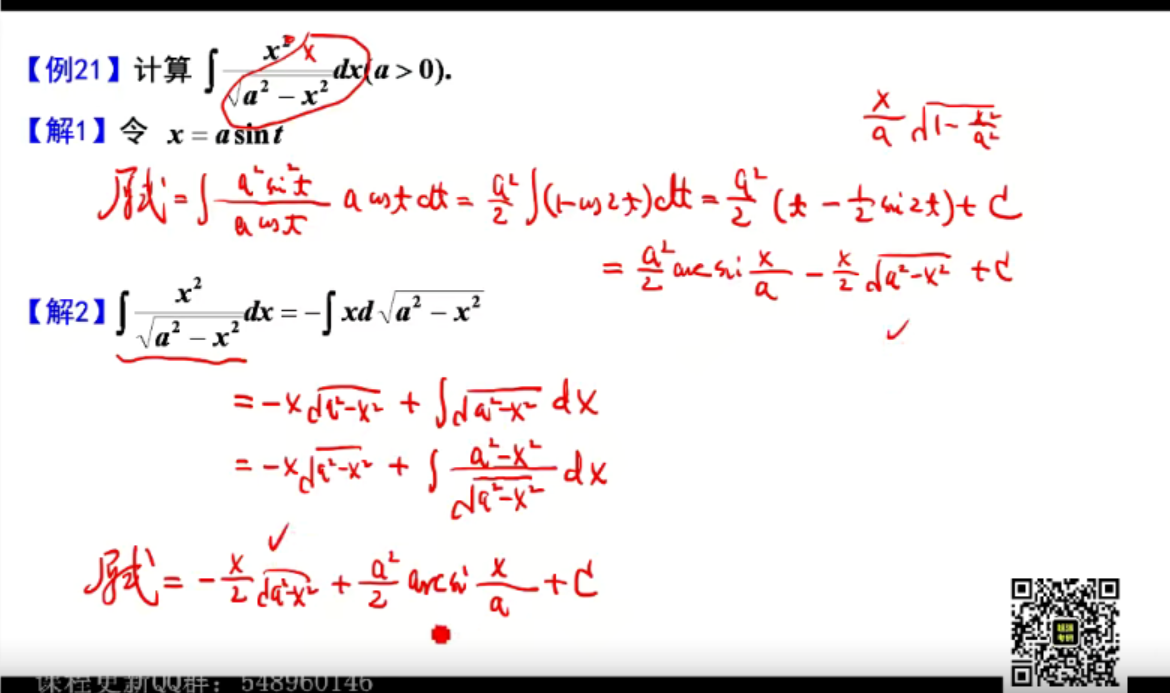 【例21】计算 ∫ x² x / √(a² − x²) dx (a > 0).
x/a √(1 − x²/a²)
【解1】令 x = a sin t
原式 = ∫ a² sin² t / (a cos t) a cos t dt = a²/2 ∫ (1 − cos 2t) dt = a²/2 (t − 1/2 sin 2t) + C
= a²/2 arcsin x/a − x/2 √(a² − x²) + C
✓
【解2】∫ x² / √(a² − x²) dx = − ∫ x d √(a² − x²)
= −x √(a² − x²) + ∫ √(a² − x²) dx
= −x √(a² − x²) + ∫ (a² − x²) / √(a² − x²) dx
✓
原式 = − x/2 √(a² − x²) + a²/2 arcsin x/a + C
课程更新QQ群：548960146